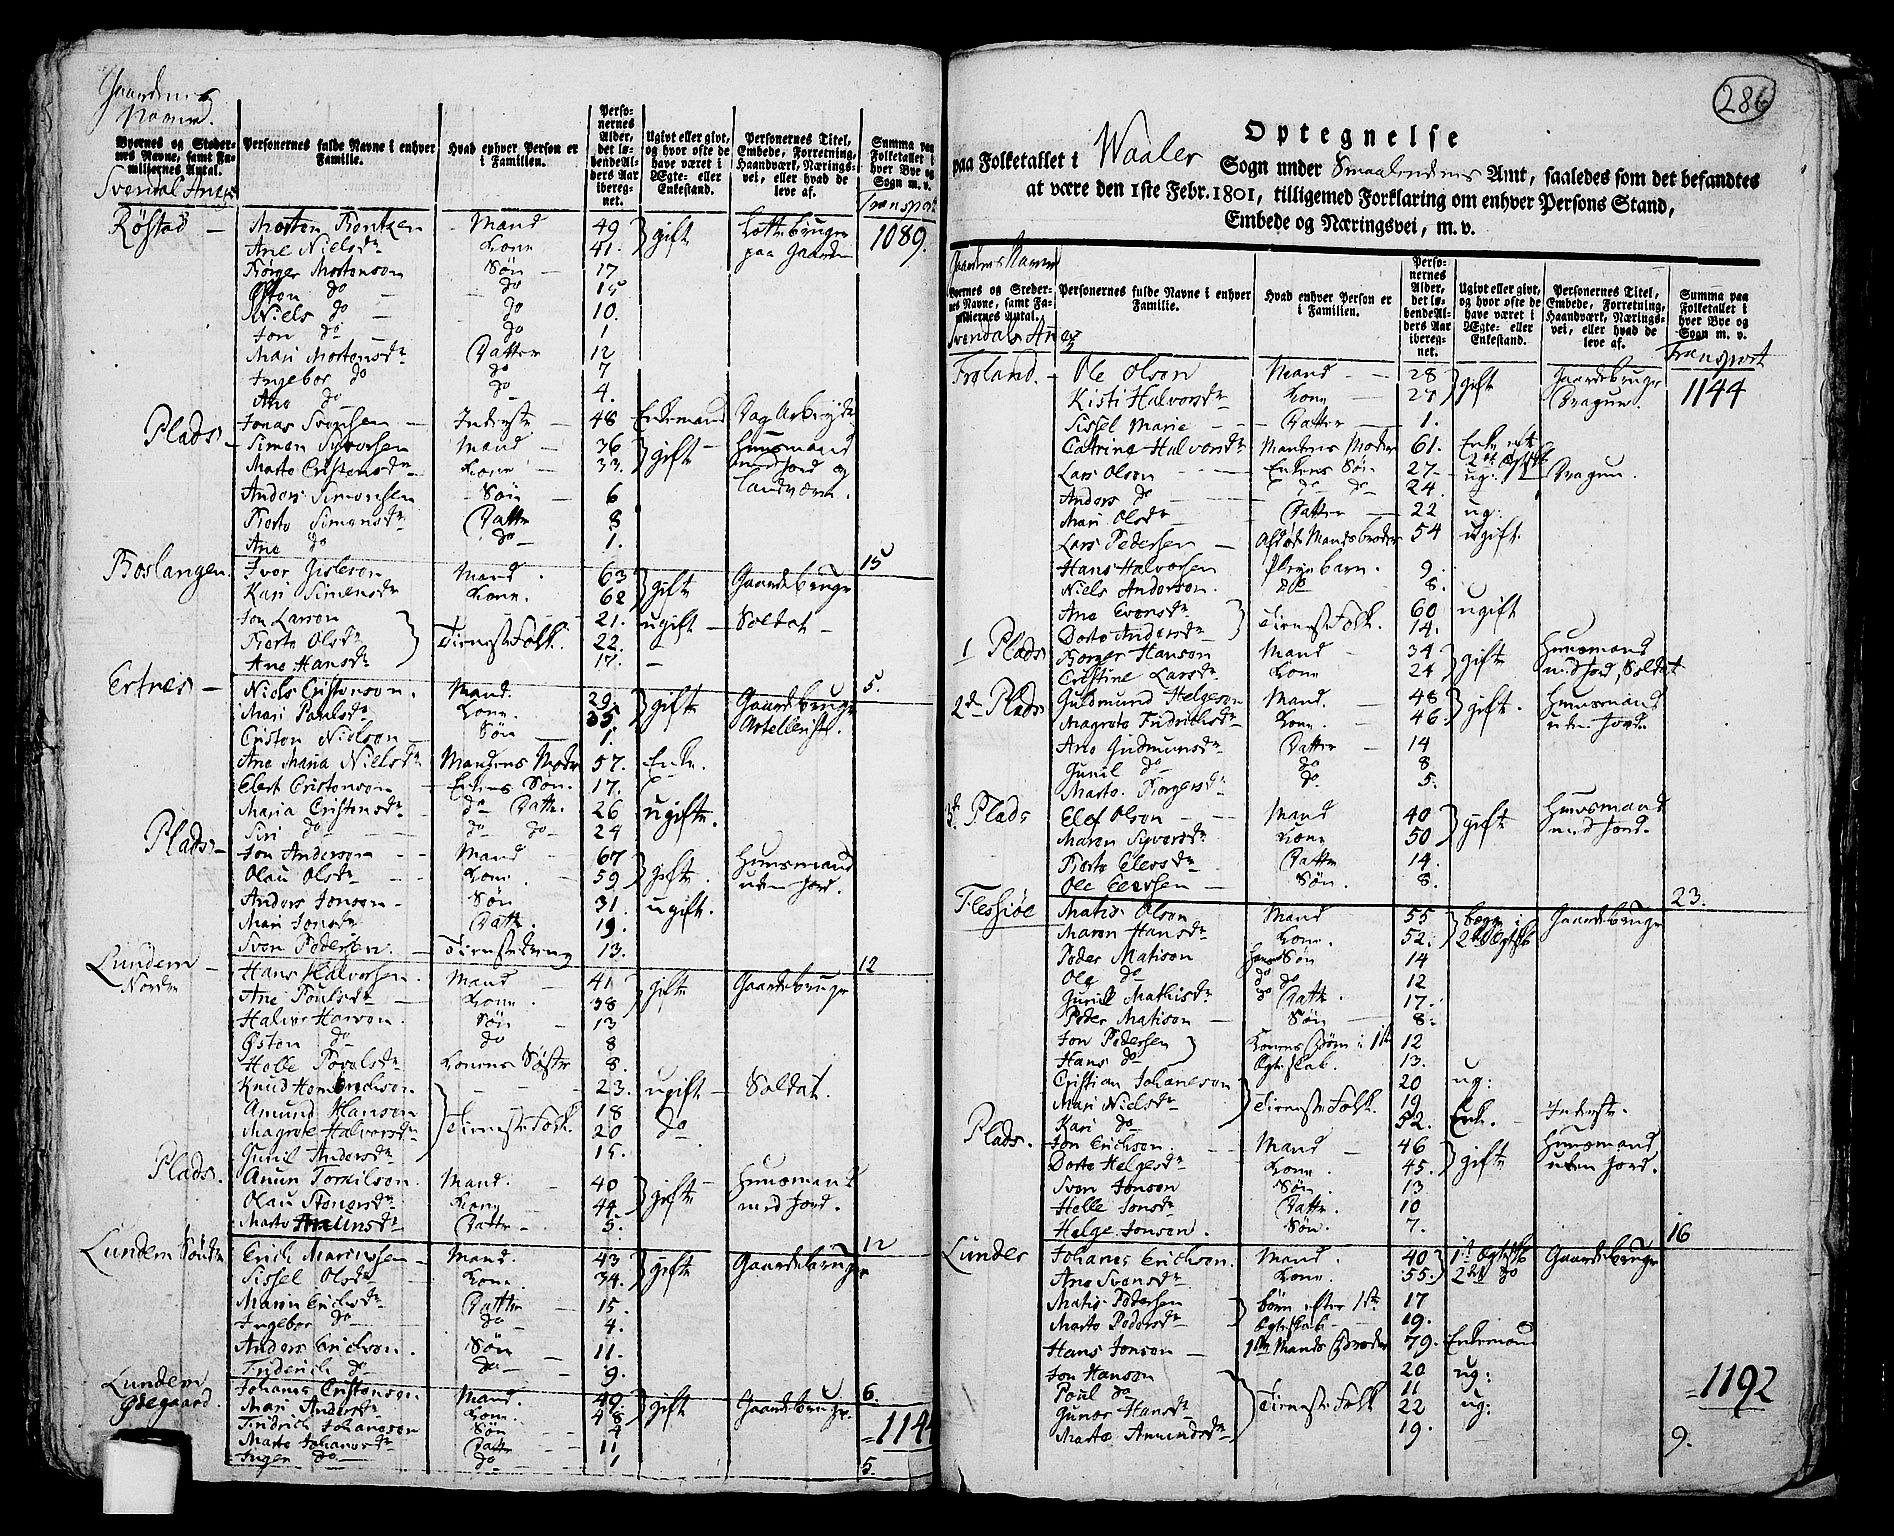 Gaardenes
Navne.
Byernes og Steder-
nes Navne, samt Fa-
miliernes Antal.
Personernes fulde Navne i enhver
Familie.
Hvad enhver Person er
i Familien.
Perso-
nernes
Alder,
det lø-
bende Al-
ders Aar
iberegnet.
Ugivt eller givt,
og hvor ofte de
have været i
Ægte- eller
Enkestand.
Personernes Titel,
Embede, Forretning,
Haandværk, Nærings-
vei, eller hvad de
leve af.
Summa paa
Folketallet i
hver Bye og
Sogn m. v.
Svendal Anex
Transport
Røstad Morten Mand 49 gift
Ane Nielsdr Kone 41. paa Gaarden 1089.
Børger Mortenson Søn 17
Østen do do 15
Niels do do 10.
Jon do do 1
Mari Mortensdr Datter 12
Ingebor do do 7
Ane do do 4.
Plads Jonas Svensen Inderste 48 Enkemand Dag Arbeyder
Simen Syversen Mand 36 gift Huusmand
Marte Cristensdr Kone 33. med Jord og
Anders Simensen Søn 6 Landværn.
Berte Simensdr Datter 8
Ane do do 1. 15
Boslangen Iver Mand 63 gift Gaardebruger
Kari Simensdr Kone. 62
Jon Larson 21. ugift Soldat
Berte Olsdr Tieneste Folk. 22.
Ane Hansdr 17. 5.
Ertnes Niels Cristenson Mand. 29. gift Gaardebruger
Mari Paulsdr Kone. 35.
Cristen Nielson Søn 1.
Ane Maria Nielsdr Mandens Moder 57. Enke.
Elert Cristenson Enkens Søn. 17.
Maria Cristensdr do Datter. 26 ugifte.
Siri do do do 24
Plads Jon Anderson Mand 67 gift Huusmand
Olau Olsdr Kone. 59 uden Jord.
Anders Jonson Søn 31. ugift.
Mari Jonsdr Datter. 19.
Sven Pedersen Tienestedreng 13. 12
Lundem Hans Halvorsen Mand 41 gift Gaardebruger
Nordre Ane Poulsdr Kone. 38
Halvor Hanson Søn 13
Østen do do 8
Helle Povelsdr Konens Søster 8.
Knud Henrichson 23. ugift Soldat.
Amund Hanson Tieneste Folk. 18 do
Magrete Halvorsdr 20
Guril Andersdr 15.
Plads. Amun Mand. 40 gift Huusmand
Olau Kone 44. med Jord.
Marte Amunsdr Datter 5. 12
Lundem Søndre Erich Mand. 43 gift Gaardebruger
Sissel Olsdr Kone. 34.
Maren Erichsdr Datter 15.
Ingebor do do 4.
Anders Erichson Søn 11.
Friderich do do 9. 6.
Lundem Johanes Cristenson Mand. 49. gift Gaardebruger.
Ødegaard Mari Andersdr Kone. 48
Fridrich Johanson Søn 4
Marte Johanesdr Datter 11
Ingen do do 1 5.
=1144
286
Optegnelse
paa Folketallet i Waaler Sogn under Smaalenenes Amt, saaledes som det befandtes
at være den 1ste Febr. 1801, tilligemed Forklaring om enhver Persons Stand,
Embede og Næringsvei, m. v.
Gaardenes Navne
Byernes og Steder-
nes Navne, samt Fa-
miliernes Antal.
Personernes fulde Navne i enhver
Familie.
Hvad enhver Person er
i Familien.
Perso-
nernes
Alder,
det lø-
bende Al-
ders Aar
iberegnet.
Ugivt eller givt,
og hvor ofte de
have været i
Ægte- eller
Enkestand.
Personernes Titel,
Embede, Forretning,
Haandværk, Nærings-
vei, eller hvad de
leve af.
Summa paa
Folketallet i
hver Bye og
Sogn m. v.
Svendals Anex
Transport
Froland. Ole Olson Mand 28 gift Gaardebruger 1144
Kisti Halvorsdr Kone 27 Dragun.
Sissel Marie Datter 1.
Catrine Halvorsdr Mandens Moder 61. Enke
Lars Olson Enkens Søn 27 ug: Dragun.
Anders do do do 24.
Mari Olsdr Datter 22 ug:
Lars Pedersen Afdøde Mands broder 54 ugift.
Hans Halvorsen Pleyebarn. 9.
Niels Anderson. do 8.
Ane Evensdr Tieneste Folk. 60 ugift
Dorte Andersdr 14.
1 Plads Børger Hanson Mand 34 gift Huusmand
Cristine Larsdr Kone 24 med Jord, Soldat
2den Plads Guldmund Helgeson Mand. 48 gift. Huusmand
Magrete Fridrichsdr Kone. 46. uden Jord.
Ane Gudmunsdr Datter 14
Gunil do do 8
Marte Borgersdr do. 5.
3de Plads Elef Olson Mand 40 gift Huusmand
Maren Syversdr Kone 50 med Jord.
Berte Elevsdr Datter 14.
Ole Elevsen Søn. 8. 23.
Flessiøe Matis Olson Mand 55 begge i Gaardebruger
Maren Hansdr Kone. 52.
Peder Matison Søn 14
Ole do do do 12
Guril Mathisdr do Datter. 17.
Peder Matison Søn 8.
Jon Pedersen Konens Børn i 1ste 12
Hans do Ægteskab. 13.
Cristian Johaneson Tieneste Folk. 20 ug:
Mari Nielsdr 19
Kari do 52. Enke. Inderste.
Plads. Jon Erichson. Mand 46 gift Huusmand
Dorte Helgesdr Kone. 45. uden Jord.
Sven Jonson Søn. 13
Helle Jonsdr Datter 10
Helge Jonson. Søn. 7. 16
Lunder Johanes Erichson. Mand 40 1ste Gaardebruger
Ane Svensdr Kone. 55. 2det do
Matis Pedersen børn efter 1ste 17
Marte Pedersdr Ægteskab 19.
Hans Jonson 1ste Mands Broder 79. Enkemand
Jon Hanson Tieneste Folk 20 ug:
Poul do 11
Gunor Hansdr 22 ug:
Marte Amundsdr 19. 9.
=1192